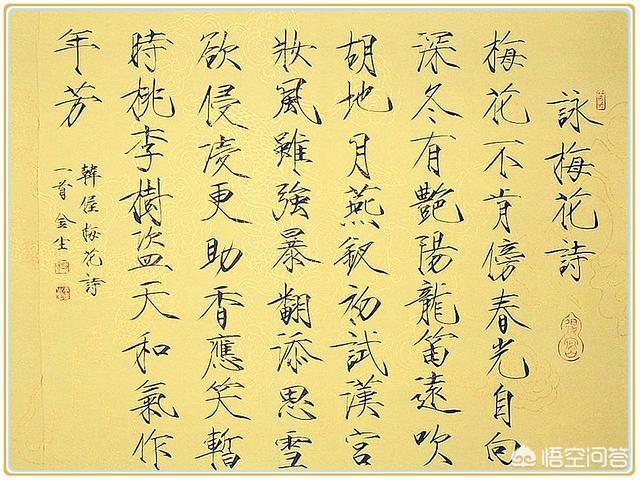 詠梅花詩
梅花不肯傍春光自向
深冬有艷陽龍笛遠吹
胡地月燕釵初試漢宮
妝風雖強暴翻添思雪
欲侵凌更助香應笑暫
時桃李樹盜天和氣作
年芳
韓偓梅花詩
一首金生
悟空问答